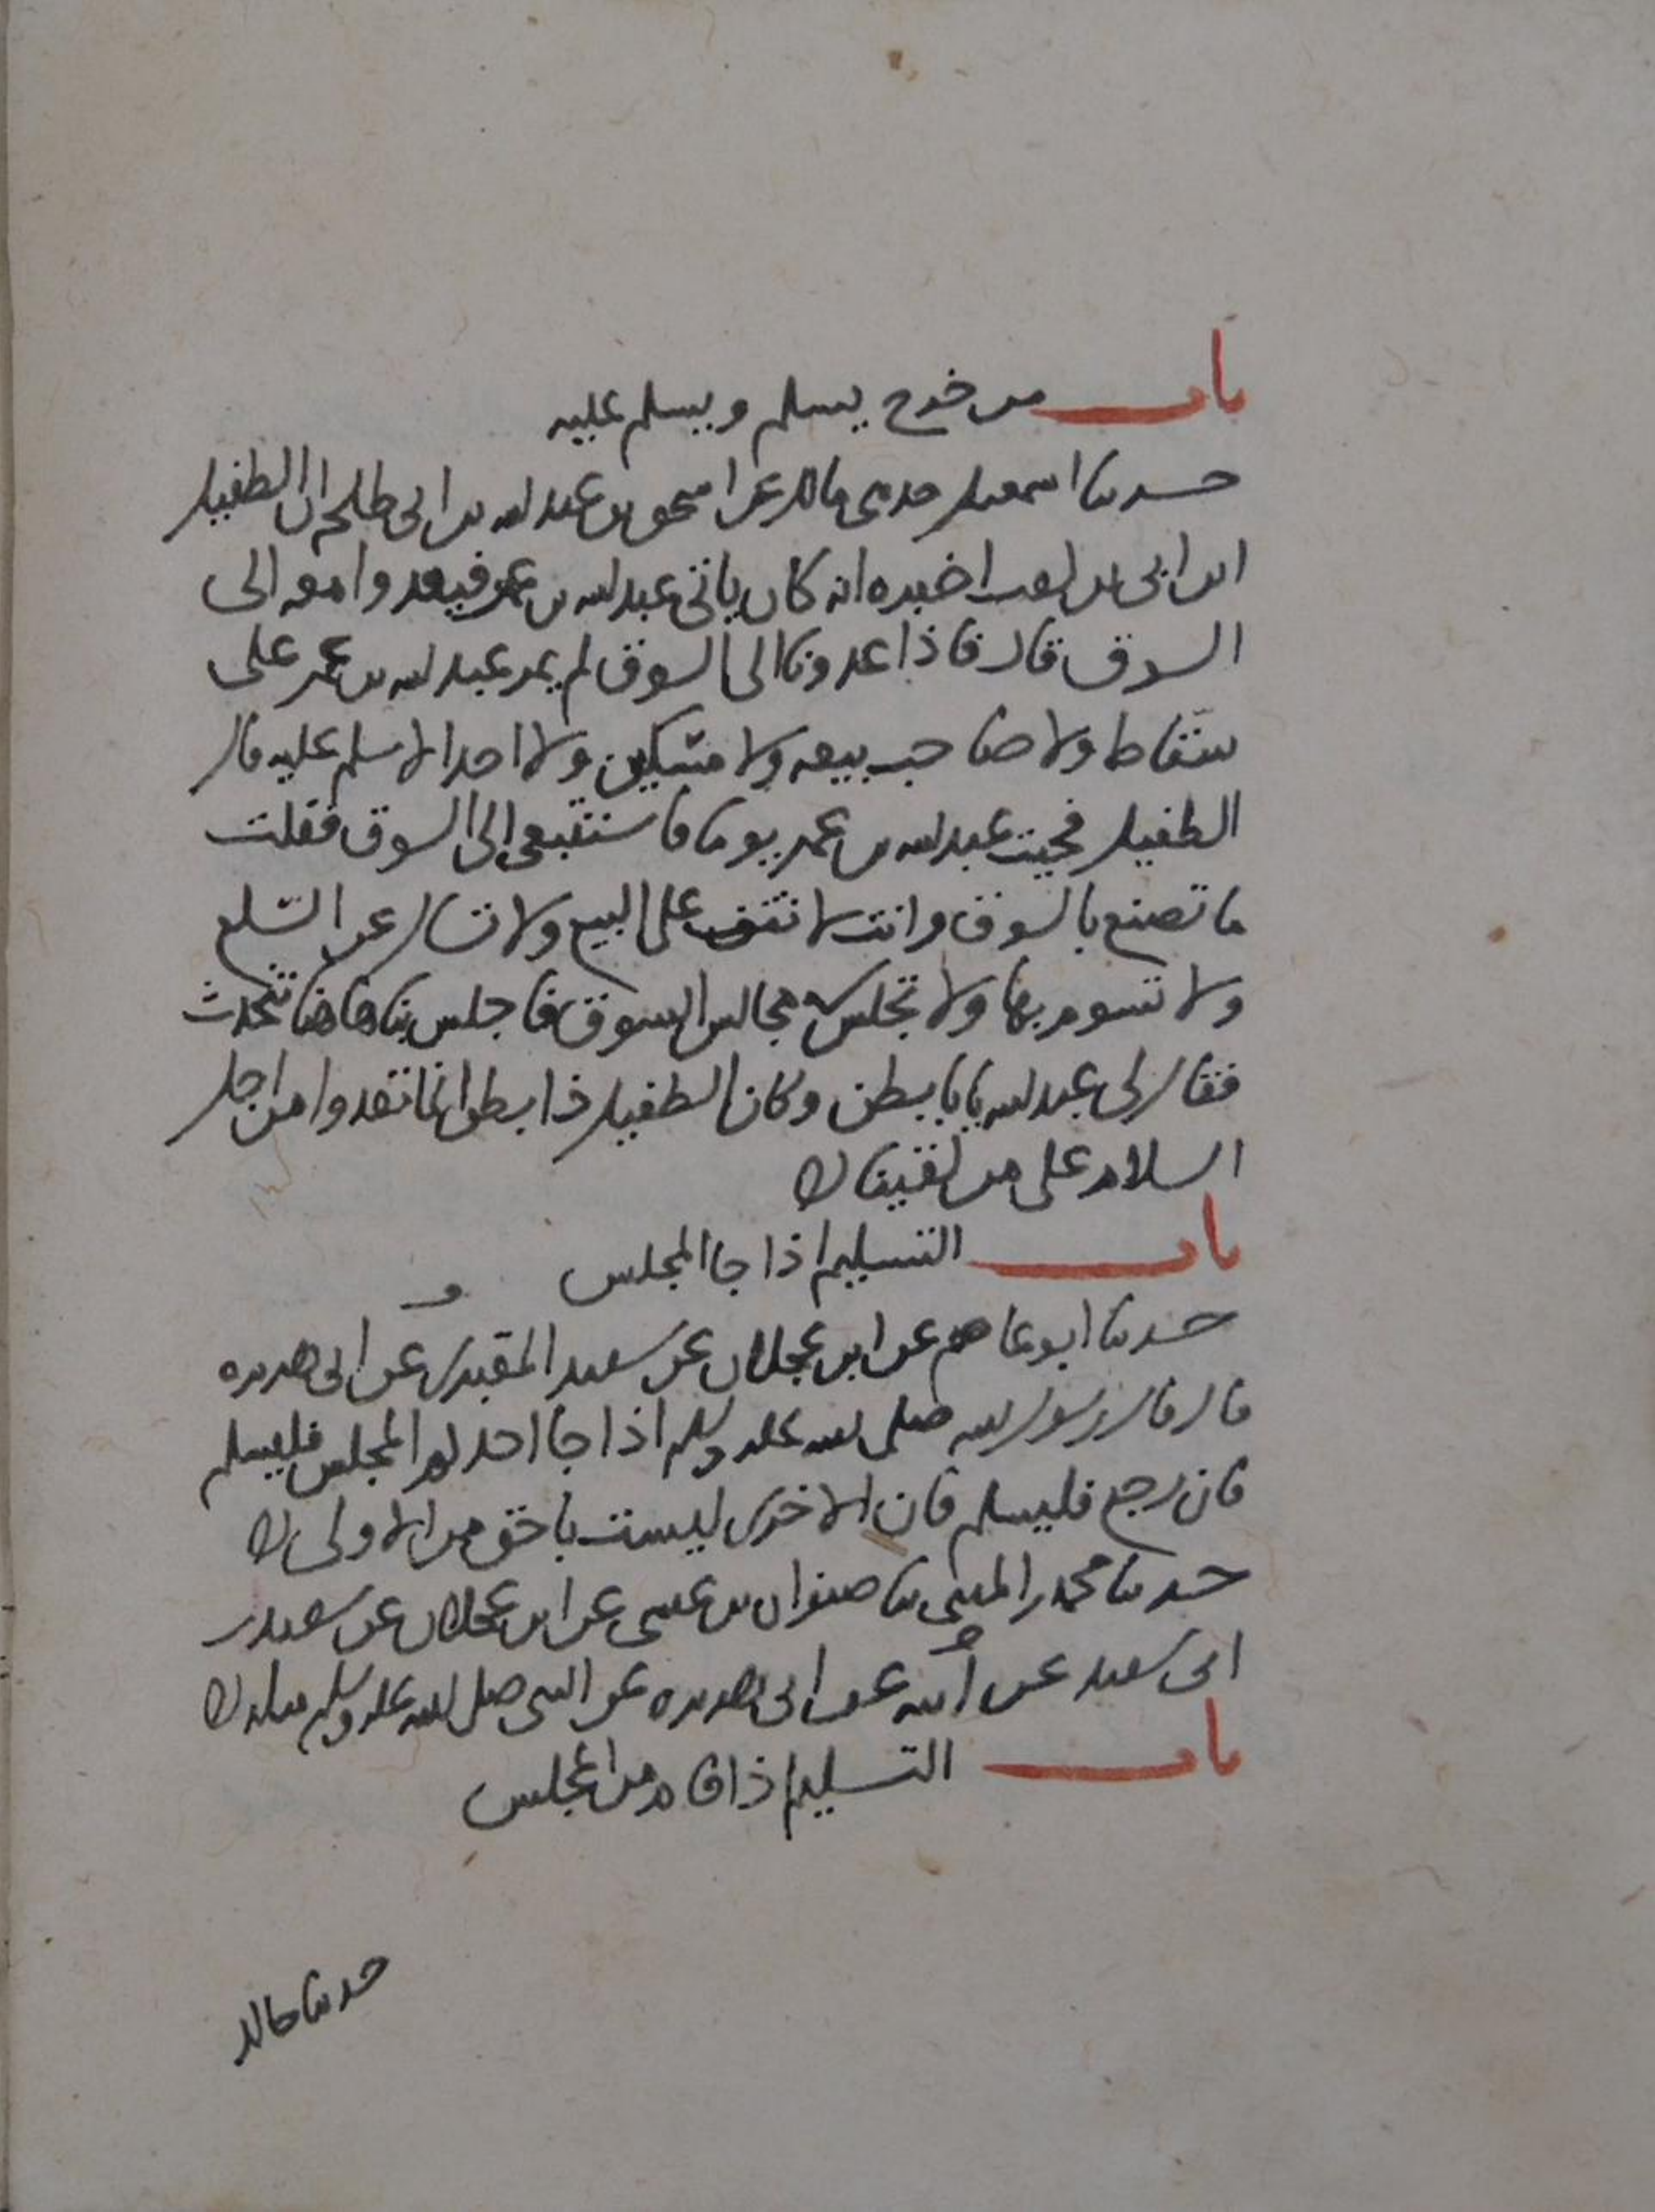 باب من خرج يسلم ويسلم عليه
حدثنا اسمعيل حدثني مالك عن اسحق بن عبد الله بن ابي طلحة ان الطفيل
ابن ابي بن كعب اخبره انه كان ياتي عبد الله بن عمر فيغدوا معه الى
السوق قال فاذا غدونا الى السوق لم يمر عبد الله بن عمر على
سقاط ولا صاحب بيعه ولا مسكين ولا احد الا سلم عليه قال
الطفيل فجيت عبد الله بن عمر يوما فاستتبعني الى السوق فقلت
ما تصنع بالسوق وانت لا تقف على البيع ولا تسال عن السلع
ولا تسوم بها ولا تجلس في مجالس السوق فاجلس بنا هاهنا نتحدث
فقال لي عبد الله يابا بطن وكان الطفيل ذا بطن انما نغدوا من اجل
السلام على من لقينا ه
باب التسليم اذا جا المجلس
حدثنا ابو عاصم عن ابن عجلان عن سعيد المقبري عن ابي هريره
قال قال رسول الله صلى الله عليه وسلم اذا جا احدكم المجلس فليسلم
فان رجع فليسلم فان الاخرى ليست باحق من الاولى ه
حدثنا محمد بن المثنى ثنا صفوان بن عيسى عن ابن عجلان عن سعيد بن
ابي سعيد عن ابيه عن ابي هريره عن النبي صلى الله عليه وسلم مثله ه
باب التسليم اذا قام من المجلس
حدثنا خالد